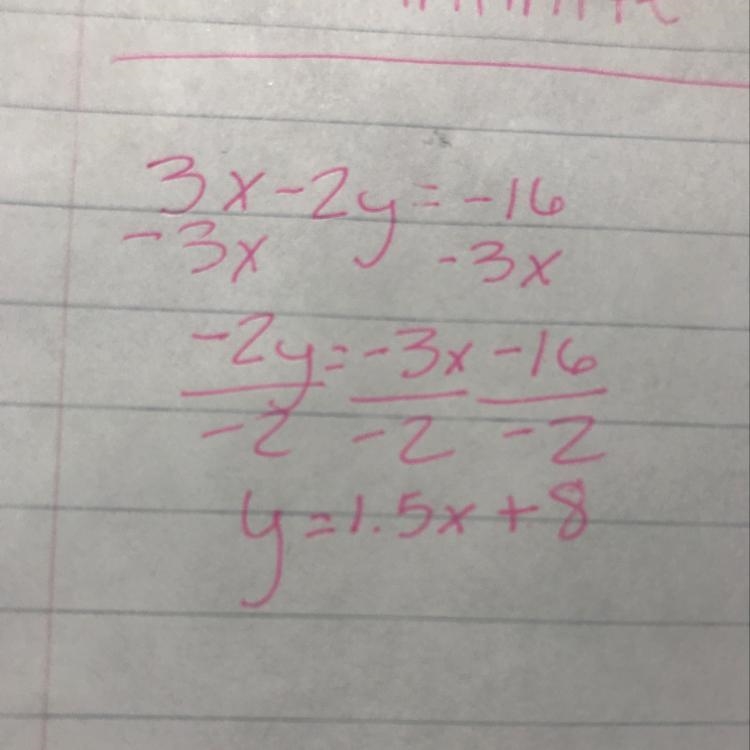 3x-2y=-16
-3x -3x
-2y=-3x-16
-2 -2 -2
y=1.5x+8